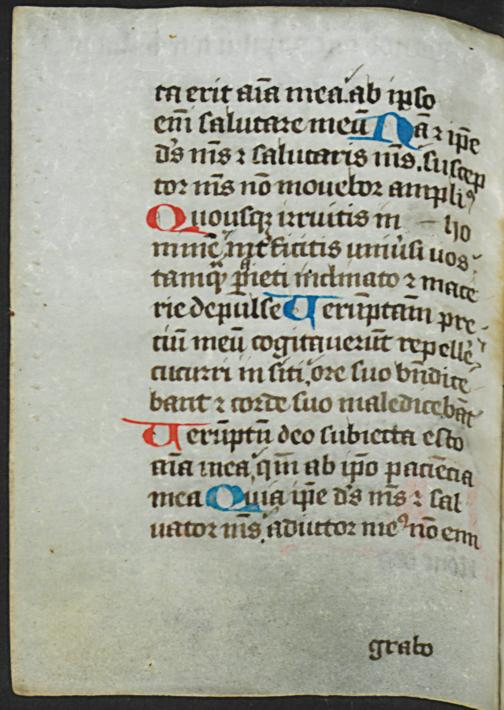 ta erit aīa mea. ab ipso
em̄ salutare meū Nā ⁊ ip̄e
d̄s m̄s ⁊ salutaris m̄s. suscep
tor m̄s nō mouebor ampliꝰ
Quousqꝫ irruitis in ho
minē, int̄ficitis uniūsi uos
tamqͣꝫ ꝑieti inclinato ⁊ mace
rie depulse Uerūptam̄ pre
ciū meū cogitauerūt repellē
cucurri in siti, ore suo bn̄dice
bant ⁊ corde suo maledicebāt
Uerūptn̄ deo subiecta esto
aīa mea, qm̄ ab ip̄o paciencia
mea Quia ip̄e d̄s m̄s ⁊ sal
uator m̄s, adiutor meꝰ nō emi
grabo